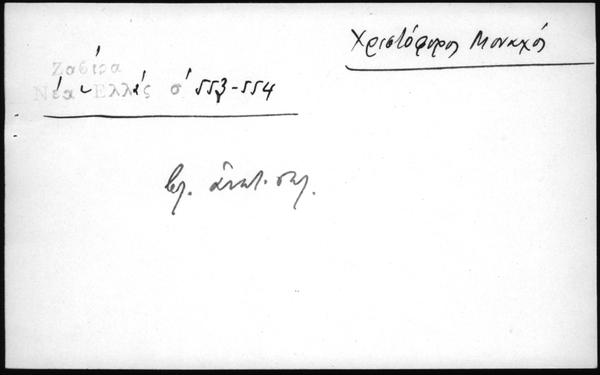 Χριστόφορος Μοναχός
Ζαβίρα
Νέα Ἑλλάς σ. 553-554
βλ. ἀνατ.